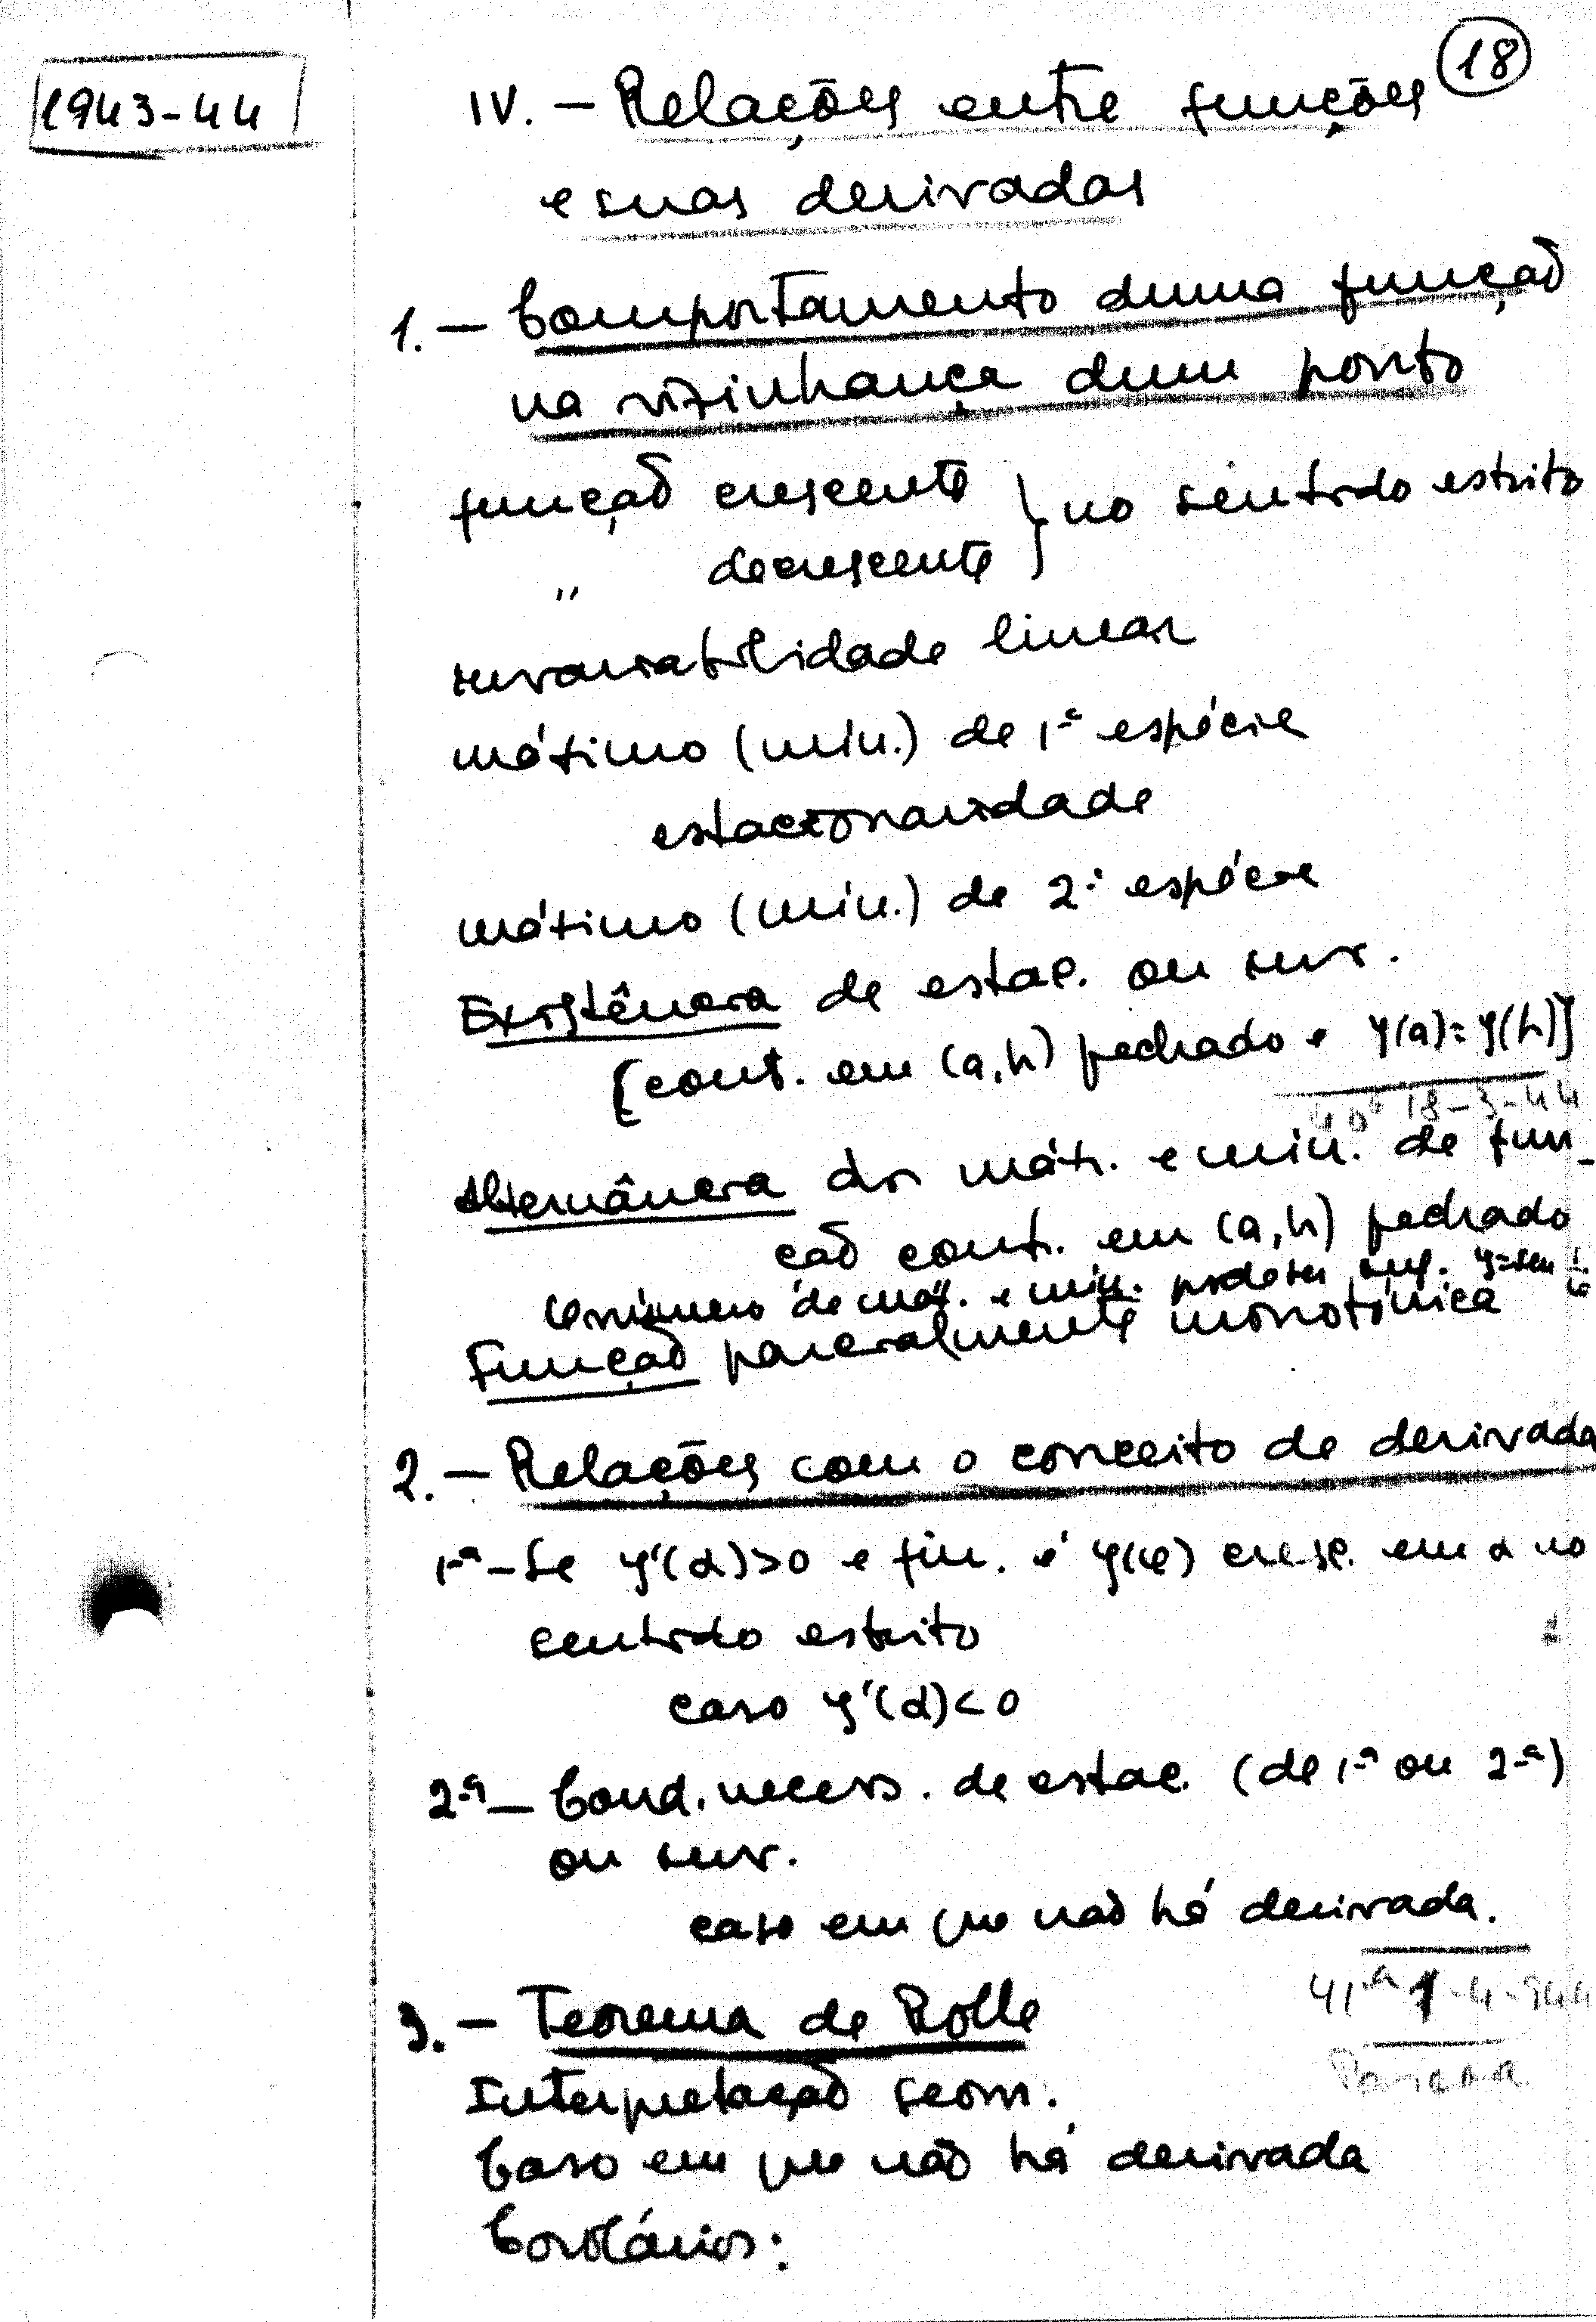 18
1943-44
IV. - Relações entre funções
e suas derivadas
1. - Comportamento duma função
na vizinhança dum ponto
função crescente } no sentido estrito
" decrescente
invariabilidade linear
máximo (mín.) de 1ª espécie
estacionaridade
máximo (mín.) de 2ª espécie
Existência de estac. ou inv.
[cont. em (a,b) fechado e y(a)=y(b)]
40ª 18-3-44
Alternância dos máx. e min. de fun-
ção cont. em (a,b) fechado
O número de máx. e min. pode ser inf. y=sen
Função parcialmente monotónica
2. - Relações com o conceito de derivada
1ª - Se y'(α)>0 e fin. é y(x) cresc. em α no
sentido estrito
caso y'(α)<0
2ª - Cond. necess. de estac. (de 1ª ou 2ª)
ou inv.
caso em que não há derivada.
41ª 1-4-944
3. - Teorema de Rolle
Interpretação geom.
Caso em que não há derivada
Corolários: